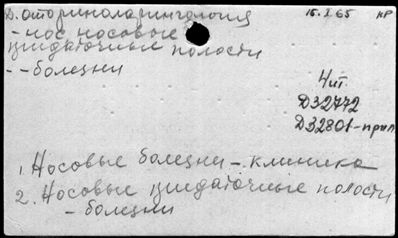 Д. оториноларингология 15.I.65 НР
- нос, носовые
придаточные полости
- - болезни
Чит.
Д32772
Д32801-прил
1. Носовые болезни - клиника
2. Носовые придаточные полости
- болезни